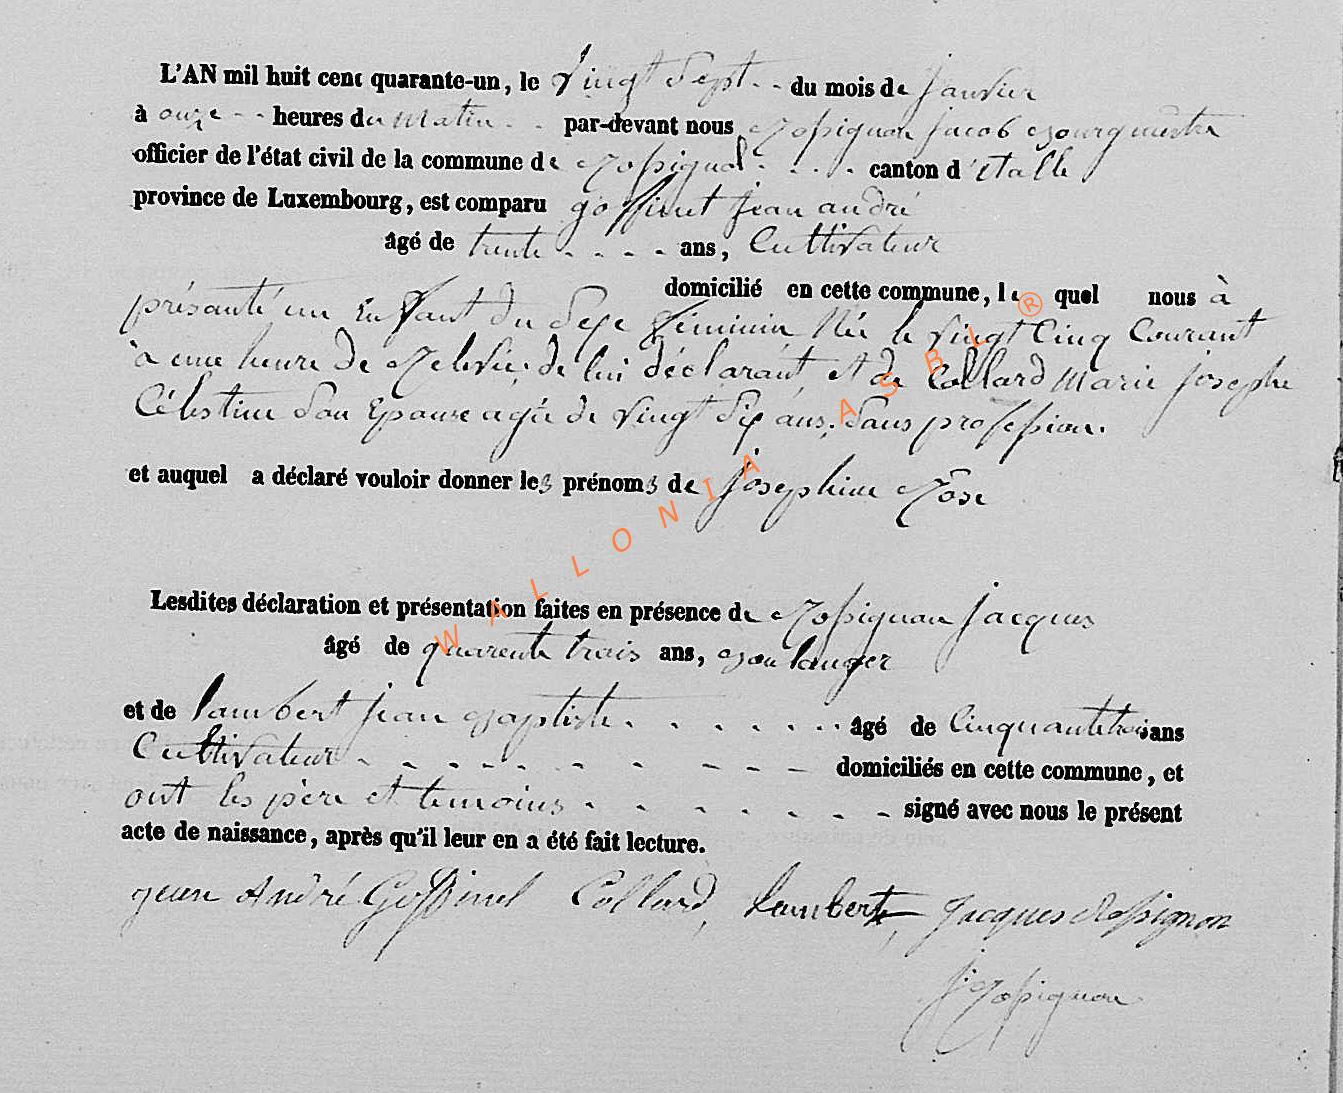 L'AN mil huit cent quarante-un, le Vingt Sept - - du mois de janvier
à onze - - heures du Matin - - par-devant nous Rossignon jacob Bourgmestre
officier de l'état civil de la commune de Rossignol - - - - canton d'Etalle
province de Luxembourg, est comparu goffinet jean andré
âgé de trente - - - - ans, Cultivateur
domicilié en cette commune, le quel nous à
présanté un Enfant du Sexe féminin Née le Vingt Cinq Courant
à une heure de Relevée, de lui déclarant, et de Collard Marie josephe
Célestine Son Epouse agée de Vingt Six ans, Sans profession.
et auquel a déclaré vouloir donner les prénoms de josephine Rose
Lesdites déclaration et présentation faites en présence de Rossignon jacques
âgé de quarente trois ans, Boulanger
et de lambert jean Baptiste - - - - - - - âgé de Cinquante trois ans
Cultivateur - - - - - - - - - - domiciliés en cette commune, et
ont les père et temoins - - - - - - - - signé avec nous le présent
acte de naissance, après qu'il leur en a été fait lecture.
jean André Goffinet Collard, Lambert, Jacques Rossignon
j Rossignon
WALLONIA ASBL ®